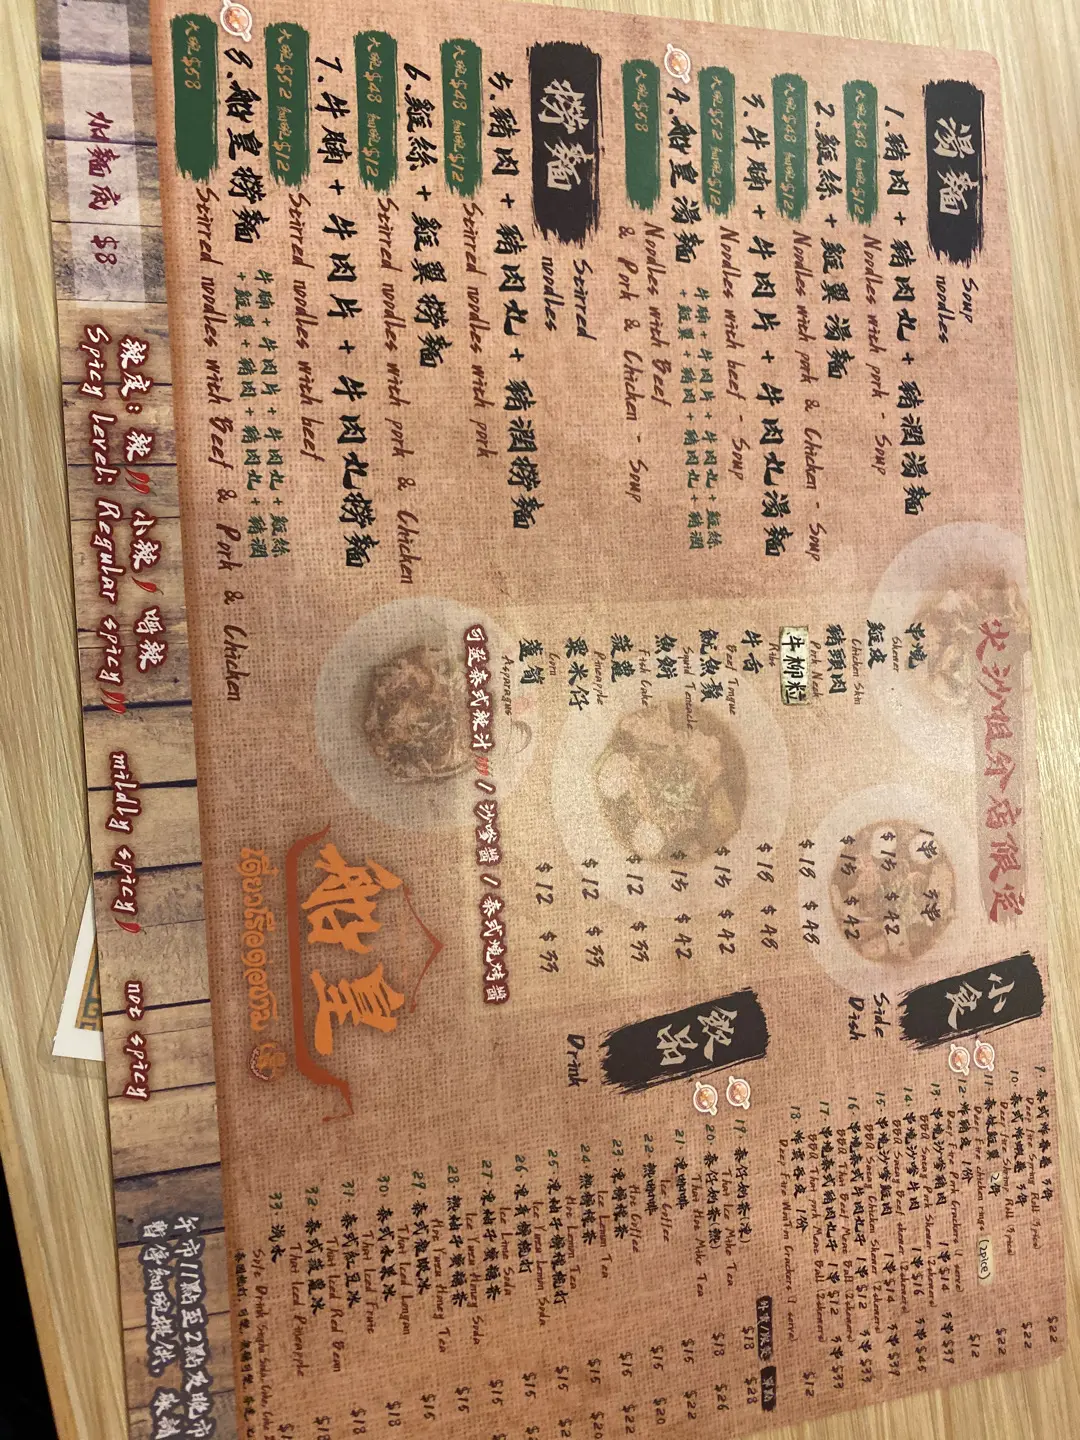 湯麵
Soup
noodles
1.豬肉 + 豬肉丸 + 豬潤湯麵
大碗$48 細碗$12
Noodles with pork - Soup
2.雞絲 + 雞翼湯麵
大碗$48 細碗$12
Noodles with pork & Chicken - Soup
3.牛腩 + 牛肉片 + 牛肉丸湯麵
大碗$52 細碗$12
Noodles with beef - Soup
4.船皇湯麵
牛腩 + 牛肉片 + 牛肉丸 + 雞絲
+ 雞翼 + 豬肉 + 豬肉丸 + 豬潤
大碗$58
Noodles with Beef
& Pork & Chicken - Soup
撈麵
Stirred
noodles
5.豬肉 + 豬肉丸 + 豬潤撈麵
大碗$48 細碗$12
Stirred noodles with pork
6.雞絲 + 雞翼撈麵
大碗$48 細碗$12
Stirred noodles with pork & Chicken
7.牛腩 + 牛肉片 + 牛肉丸撈麵
大碗$52 細碗$12
Stirred noodles with beef
8.船皇撈麵
牛腩 + 牛肉片 + 牛肉丸 + 雞絲
+ 雞翼 + 豬肉 + 豬肉丸 + 豬潤
大碗$58
Stirred noodles with Beef & Pork & Chicken
尖沙咀分店限定
串燒 1串 3串
Skewer
雞皮 $15 $42
Chicken Skin
豬頸肉 $15 $42
Pork Neck
牛柳粒 $18 $48
Ribs
牛舌 $18 $48
Beef Tongue
魷魚鬚 $15 $42
Squid Tentacle
魚餅 $15 $42
Fish Cake
菠蘿 $12 $33
Pineapple
粟米仔 $12 $33
Corn
蘆筍 $12 $33
Asparagus
可蘸泰式辣汁 / 沙嗲醬 / 泰式燒烤醬
船皇
小食
Side
Dish
9. 泰式炸春卷 3件 $22
Deep Fire Spring Roll (3pics)
10. 泰式炸蝦卷 3件 $22
Deep fire Shrimp Roll (3pics)
11. 泰妹雞翼 2件 $22
Deep Fire chicken rings (2pics)
12. 炸豬皮 1份 $12
Deep Fire Pork Crackers (1 serve)
13. 串燒沙嗲豬肉 1串$14 3串$39
BBQ Satay Pork Skewer (2skewers)
14. 串燒沙嗲牛肉 1串$16 3串$45
BBQ Satay Beef skewer (2skewers)
15. 串燒沙嗲雞肉 1串$14 3串$39
BBQ Satay Chicken Skewer (2skewers)
16. 串燒泰式牛肉丸 1串$12 3串$33
BBQ Thai Beef Meat Ball (2skewers)
17. 串燒泰式豬肉丸 1串$12 3串$33
BBQ Thai Pork Meat Ball (2skewers)
18. 炸雲吞皮 1份 $12
Deep Fire WonTon Crackers (1 serve)
飲品
Drink
19. 泰仔奶茶(凍) $18 $28
Thai Ice Milk Tea
20. 泰仔奶茶(熱) $18 $26
Thai Hot Milk Tea
21. 凍咖啡 $15 $22
Ice Coffee
22. 熱咖啡 $15 $20
Hot Coffee
23. 凍檸檬茶 $15 $22
Ice Lemon Tea
24. 熱檸檬茶 $15 $20
Hot Lemon Tea
25. 凍柚子檸檬梳打 $15
Ice Yuzu Lemon Soda
26. 凍青檸梳打 $15
Ice Lemon Soda
27. 凍柚子蜜糖茶 $15
Ice Yuzu Honey Soda
28. 熱柚子蜜糖茶 $15
Hot Yuzu Honey Tea
29. 泰式龍眼冰 $15
Thai Iced Longan
30. 泰式水果冰 $18
Thai Iced Fruits
31. 泰式紅豆冰 $18
Thai Iced Red Bean
32. 泰式菠蘿冰 $18
Thai Iced Pineapple
33. 汽水
加麵底 $8
辣度: 辣 小辣 唔辣
Spicy Level: Regular spicy mildly spicy not spicy
午市11點至2點及晚市
暫停細碗提供，敬請